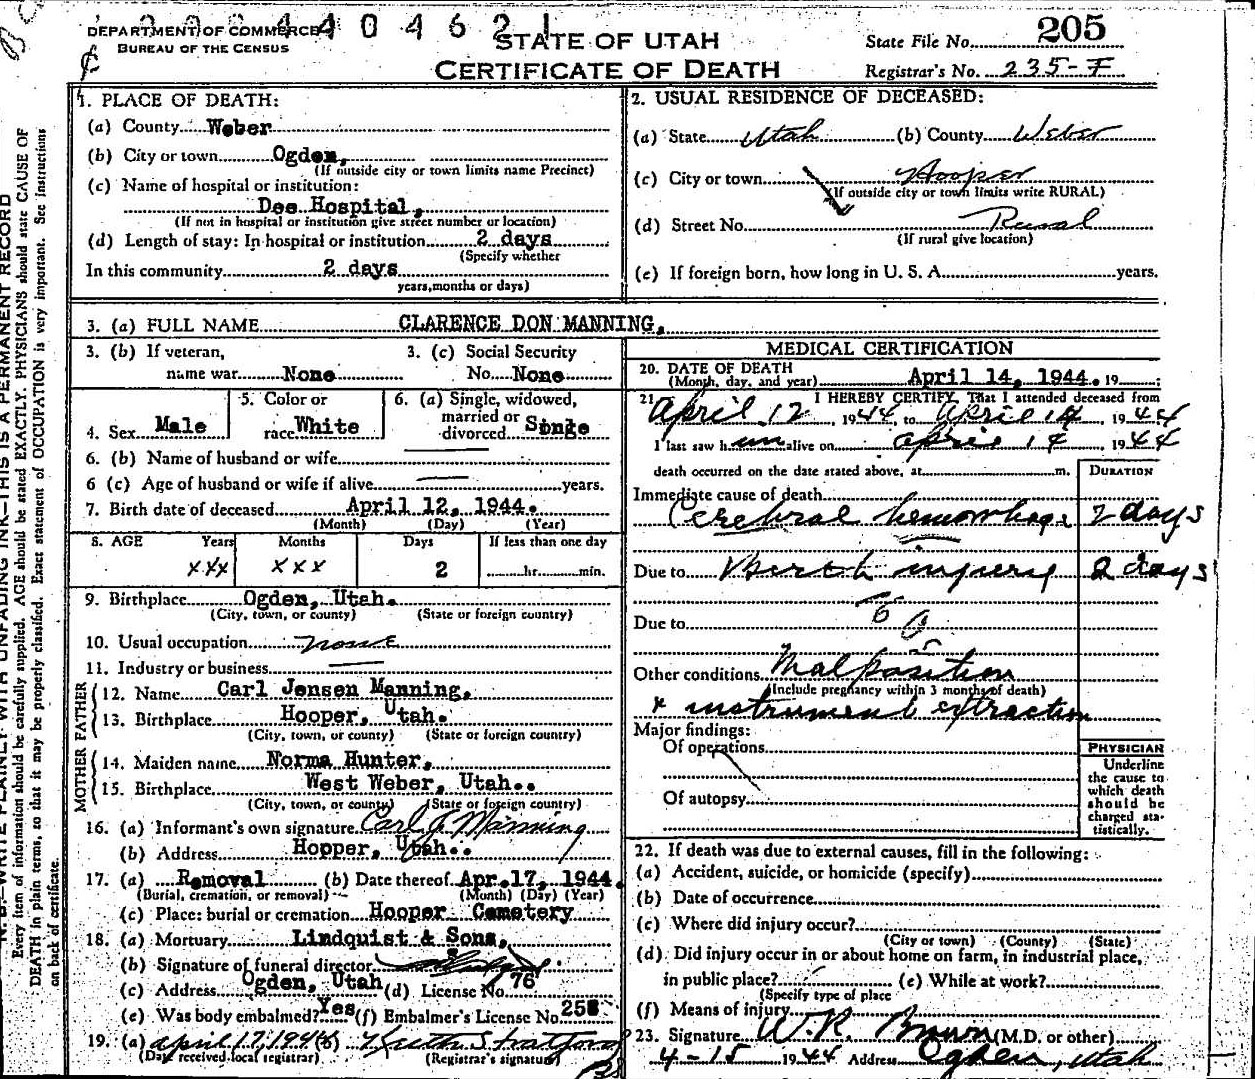 DEPARTMENT OF COMMERCE
BUREAU OF THE CENSUS
4 0 4 6 2 1
STATE OF UTAH
CERTIFICATE OF DEATH
State File No. 205
Registrar's No. 235-F
1. PLACE OF DEATH:
(a) County Weber
(b) City or town Ogden,
(If outside city or town limits name Precinct)
(c) Name of hospital or institution:
Dee Hospital,
(If not in hospital or institution give street number or location)
(d) Length of stay: In hospital or institution 2 days
(Specify whether
In this community 2 days
years, months or days)
2. USUAL RESIDENCE OF DECEASED:
(a) State Utah (b) County Weber
(c) City or town Hooper
(If outside city or town limits write RURAL)
(d) Street No. Rural
(If rural give location)
(e) If foreign born, how long in U. S. A. years.
3. (a) FULL NAME CLARENCE DON MANNING,
3. (b) If veteran,
name war None
3. (c) Social Security
No. None
4. Sex Male
5. Color or
race White
6. (a) Single, widowed,
married or
divorced Single
6. (b) Name of husband or wife
6 (c) Age of husband or wife if alive years.
7. Birth date of deceased April 12, 1944.
(Month) (Day) (Year)
8. AGE Years Months Days If less than one day
xxx xxx 2 hr. min.
9. Birthplace Ogden, Utah.
(City, town, or county) (State or foreign country)
10. Usual occupation none
11. Industry or business
FATHER
12. Name Carl Jensen Manning,
13. Birthplace Hooper, Utah.
(City, town, or county) (State or foreign country)
MOTHER
14. Maiden name Norma Hunter,
15. Birthplace West Weber, Utah..
(City, town, or county) (State or foreign country)
16. (a) Informant's own signature Carl J. Manning
(b) Address Hopper, Utah..
17. (a) Removal (b) Date thereof Apr. 17, 1944.
(Burial, cremation, or removal) (Month) (Day) (Year)
(c) Place: burial or cremation Hooper Cemetery
18. (a) Mortuary Lindquist & Sons,
(b) Signature of funeral director
(c) Address Ogden, Utah (d) License No. 76
(e) Was body embalmed? Yes (f) Embalmer's License No. 258
19. (a) April 17, 1944 (b)
(Date received local registrar) (Registrar's signature)
MEDICAL CERTIFICATION
20. DATE OF DEATH
(Month, day, and year) April 14, 1944. 19
21. I HEREBY CERTIFY, That I attended deceased from
April 12, 1944, to April 14, 1944
I last saw him alive on April 14 1944
death occurred on the date stated above, at m.
DURATION
Immediate cause of death
Cerebral hemorrhage 2 days
Due to Birth injury 2 days
Due to
Other conditions Malposition
(Include pregnancy within 3 months of death)
& instrument extraction
Major findings:
Of operations
Of autopsy
PHYSICIAN
Underline
the cause to
which death
should be
charged sta-
tistically.
22. If death was due to external causes, fill in the following:
(a) Accident, suicide, or homicide (specify)
(b) Date of occurrence
(c) Where did injury occur?
(City or town) (County) (State)
(d) Did injury occur in or about home on farm, in industrial place,
in public place? (e) While at work?
(Specify type of place
(f) Means of injury
23. Signature W. R. Brown (M.D. or other)
4-15 1944 Address Ogden, Utah
WRITE PLAINLY WITH UNFADING INK—THIS IS A PERMANENT RECORD
Every item of information should be carefully supplied. AGE should be stated EXACTLY. PHYSICIANS should state CAUSE OF
DEATH in plain terms, so that it may be properly classified. Exact statement of OCCUPATION is very important. See instructions
on back of certificate.